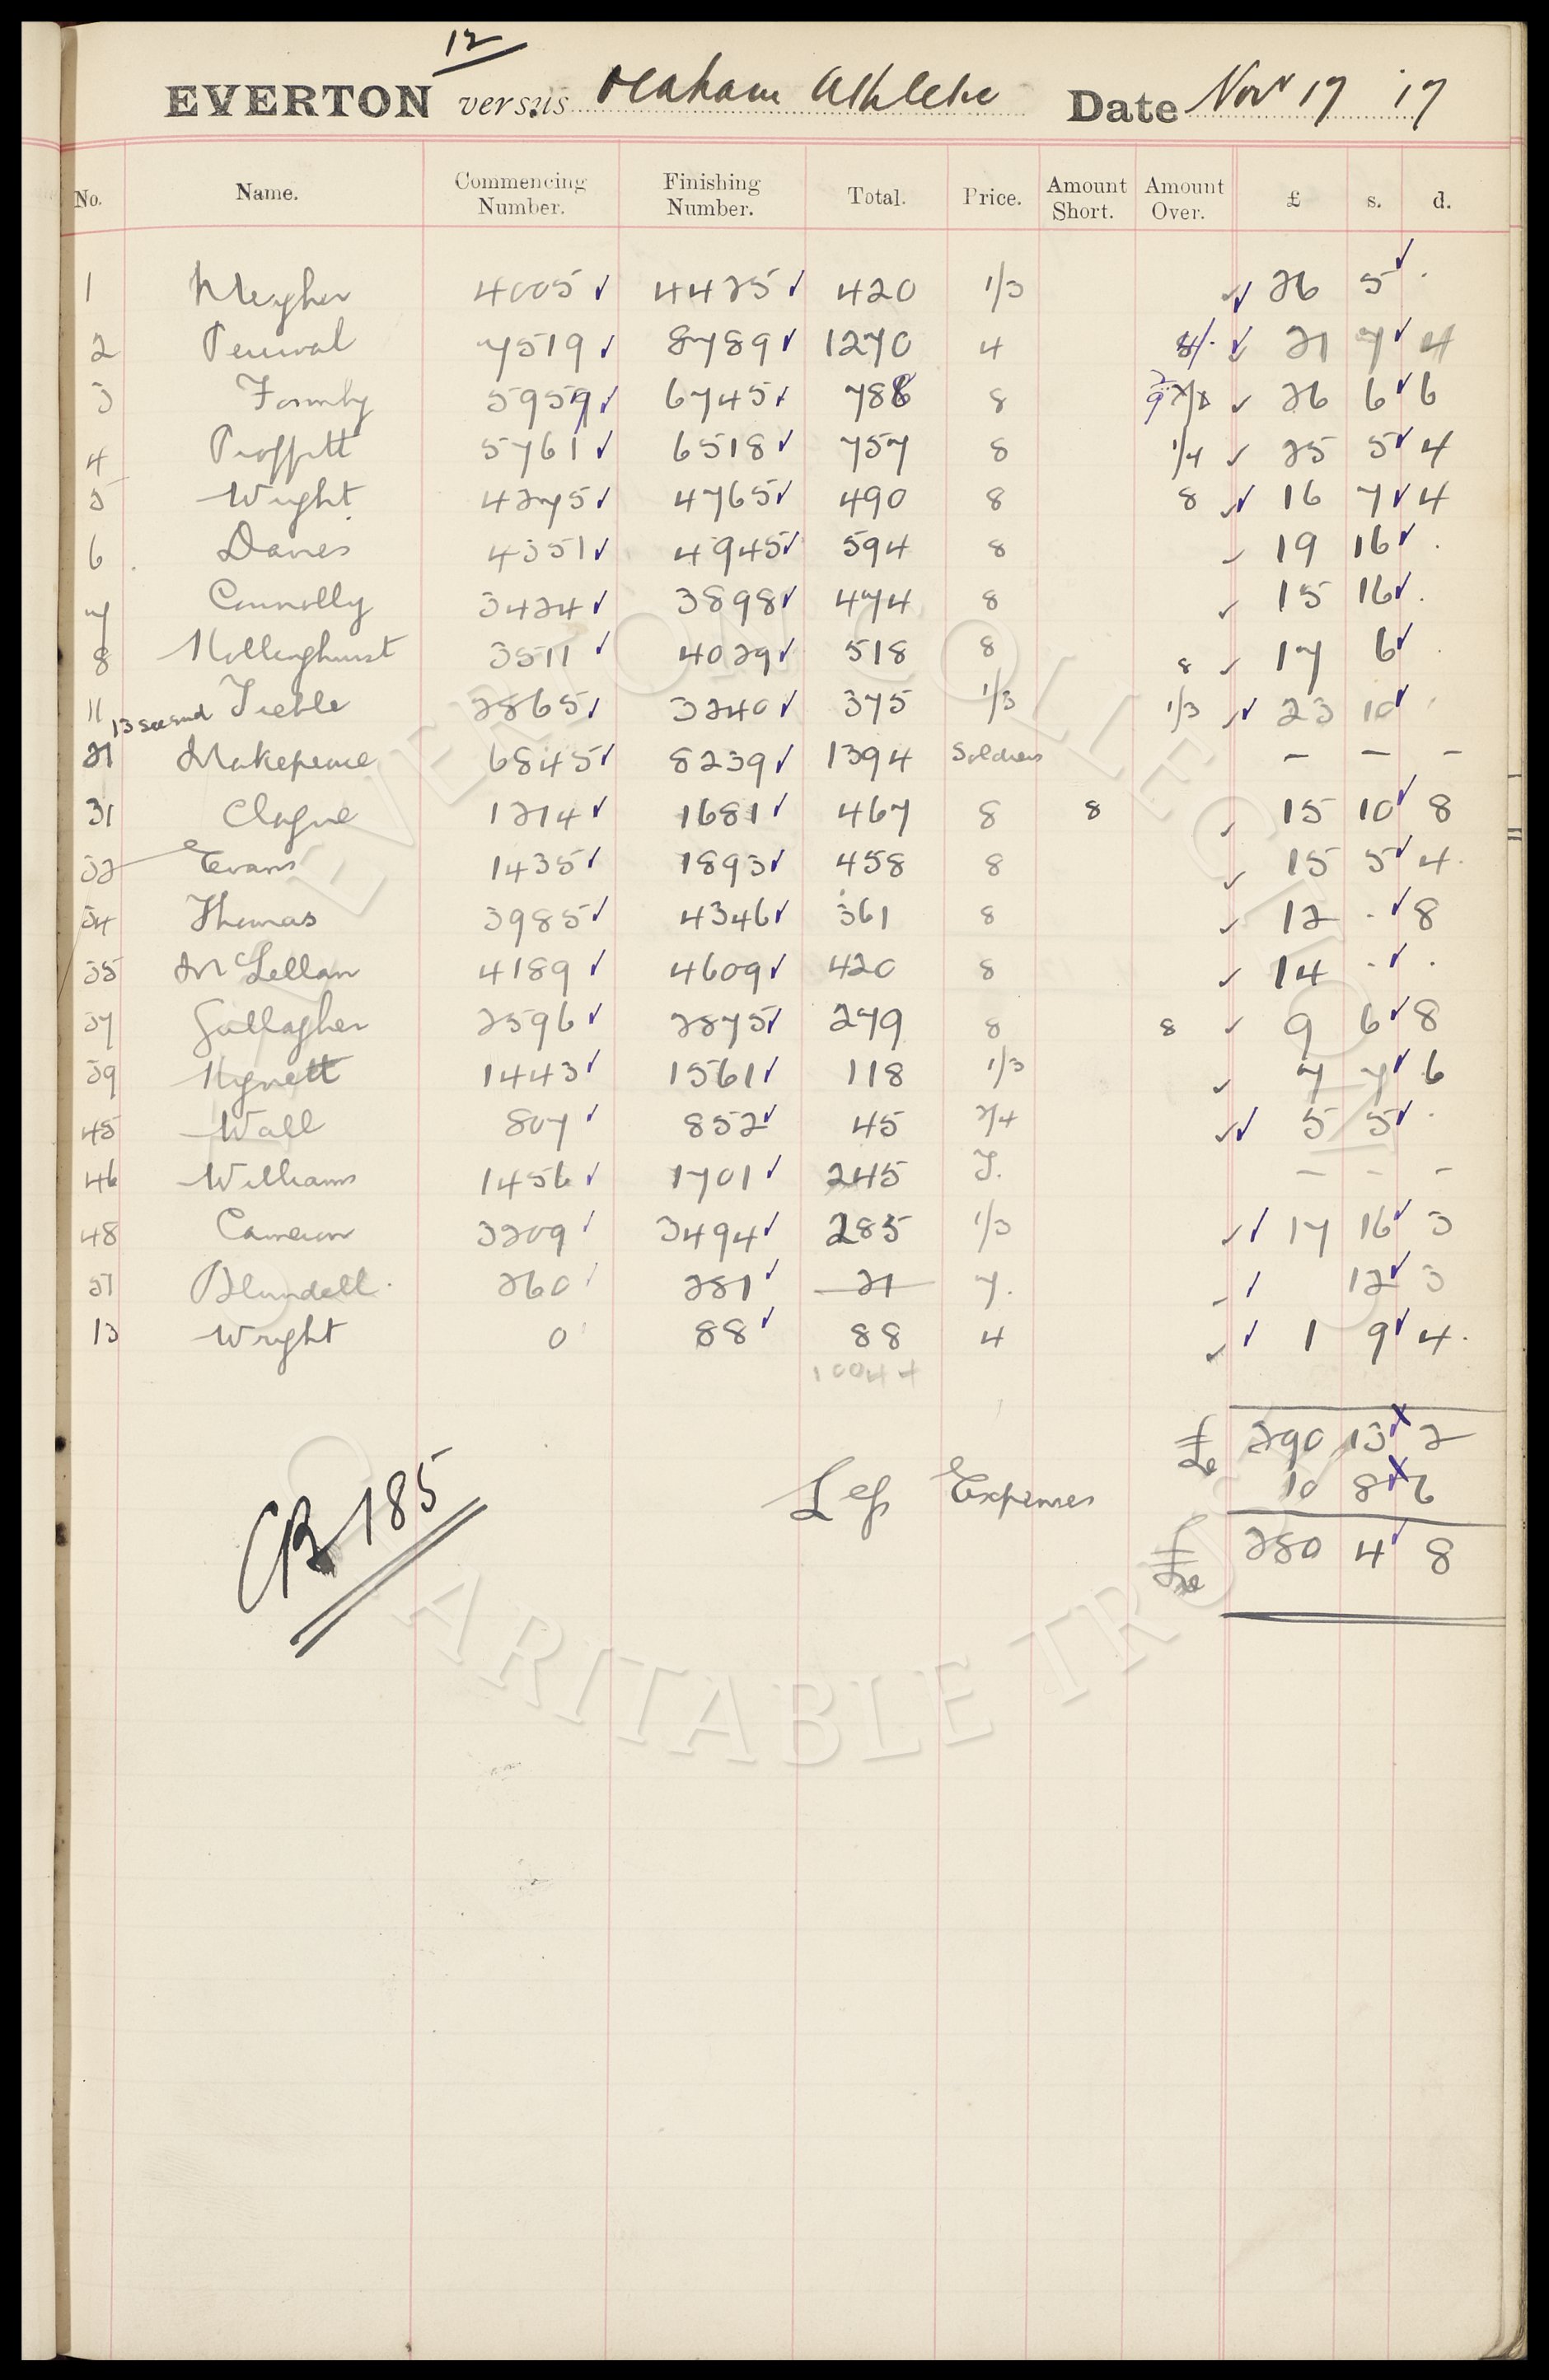 12
EVERTON versus Oldham Athletic Date Nov 17 '17
No. Name. Commencing Number. Finishing Number. Total. Price. Amount Short. Amount Over. £ s. d.
1 Meagher 4005 ✓ 4425 ✓ 420 1/3 ✓✓ 26 5 ✓ .
2 Percival 7519 ✓ 8789 ✓ 1270 4 4/. ✓✓ 21 7 ✓ 4
3 Formby 5959 ✓ 6745 ✓ 786 8 ✓ 26 6 ✓ 6
4 Proffitt 5761 ✓ 6518 ✓ 757 8 1/4 ✓ 25 5 ✓ 4
5 Wright 4275 ✓ 4765 ✓ 490 8 8 ✓✓ 16 7 ✓ 4
6 Davies 4351 ✓ 4945 ✓ 594 8 ✓ 19 16 ✓ .
7 Connolly 3424 ✓ 3898 ✓ 474 8 ✓ 15 16 ✓ .
8 Hollinghurst 3511 ✓ 4029 ✓ 518 8 8 ✓ 17 6 ✓ .
11 Treble 2865 ✓ 3240 ✓ 375 1/3 1/3 ✓✓ 23 10 ✓ .
13 second
21 Makepeace 6845 ✓ 8239 ✓ 1394 Soldiers – – –
31 Clague 1214 ✓ 1681 ✓ 467 8 8 ✓ 15 10 ✓ 8
32 Evans 1435 ✓ 1893 ✓ 458 8 ✓ 15 5 ✓ 4.
34 Thomas 3985 ✓ 4346 ✓ 361 8 ✓ 12 . ✓ 8
35 McLellan 4189 ✓ 4609 ✓ 420 8 ✓ 14 . ✓ .
37 Gallagher 2596 ✓ 2875 ✓ 279 8 8 ✓ 9 6 ✓ 8
39 Hynett 1443 ✓ 1561 ✓ 118 1/3 ✓ 7 7 ✓ 6
45 Wall 807 ✓ 852 ✓ 45 2/4 ✓✓ 5 5 ✓ .
46 Williams 1456 ✓ 1701 ✓ 245 – – –
48 Cameron 3209 ✓ 3494 ✓ 285 1/3 ✓✓ 17 16 ✓ 3
51 Blundell 260 ✓ 281 ✓ 21 7. ✓ 12 ✓ 3
13 Wright 0 88 ✓ 88 4 ✓✓ 1 9 ✓ 4.
10044
£ 290 13 2
Less Expenses 10 8 6
£ 280 4 ✓ 8
CB 185
EVERTON COLLECTION
CHARITABLE TRUST